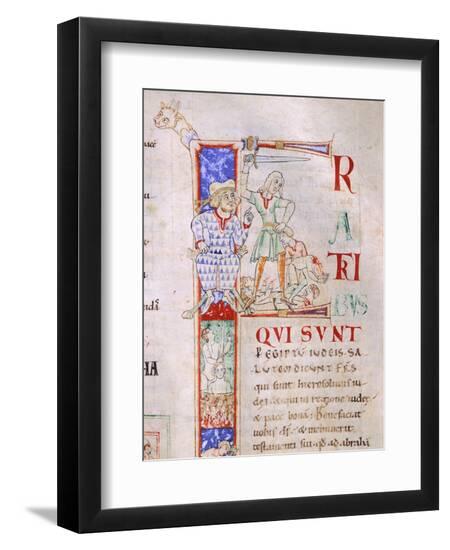 F R
A
TRI
BVS
QVI SVNT
P EGIPTŪ IUDEIS SA
LUTĒ DICUNT FR̄S
qui sunt hierosolimis iu
dei & qui in regione iudeę
& pacē bonā. Benefaciat
uobis dṡ & meminerit
testamenti sui qđ ad abrahā
HA